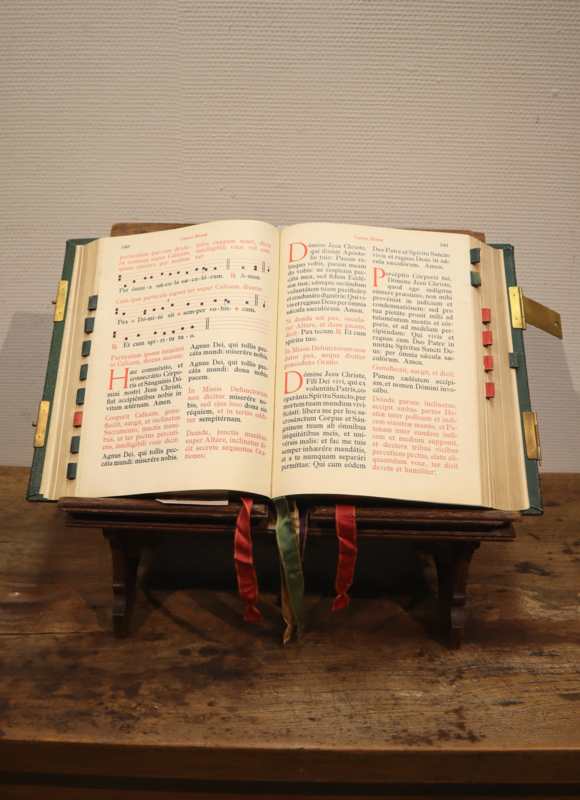 340
Canon Missæ
particulam parvam dextera
super cuppam tenet, dicit
intelligibili voce vel cantat:
Per ómni-a sǽ-cu-la sæ-cu-ló-rum. ℟. A-men.
Cum ipsa particula signat ter super Calicem, dicens:
Pax + Dó-mi-ni sit + sem-per vo-bís- + cum.
℟. Et cum spí-ri-tu tu-o.
Particulam ipsam immittit
in Calicem, dicens secreto:
Hæc commíxtio, et
consecrátio Córpo-
ris et Sánguinis Dó-
mini nostri Jesu Christi,
fiat accipiéntibus nobis in
vitam ætérnam. Amen.
Cooperit Calicem, genu-
flectit, surgit, et inclinatus
Sacramento, junctis mani-
bus, et ter pectus percuti-
ens, intelligibili voce dicit:
Agnus Dei, qui tollis pec-
cáta mundi: miserére nobis.
Agnus Dei, qui tollis pec-
cáta mundi: miserére nobis.
Agnus Dei, qui tollis pec-
cáta mundi: dona nobis
pacem.
In Missis Defunctorum
non dicitur miserére no-
bis, sed ejus loco dona eis
réquiem, et in tertio addi-
tur sempitérnam.
Deinde, junctis manibus
super Altare, inclinatus di-
cit secreto sequentes Ora-
tiones:
Canon Missæ
341
Dómine Jesu Christe,
qui dixísti Apósto-
lis tuis: Pacem re-
línquo vobis, pacem meam
do vobis: ne respícias pec-
cáta mea, sed fidem Ecclé-
siæ tuæ; eámque secúndum
voluntátem tuam pacificáre
et coadunáre dignéris: Qui vi-
vis et regnas Deus per ómnia
sǽcula sæculórum. Amen.
Si danda est pax, oscula-
tur Altare, et dans pacem,
dicit: Pax tecum. ℟. Et cum
spíritu tuo.
In Missis Defunctorum non
datur pax, neque dicitur
præcedens Oratio.
Dómine Jesu Christe,
Fili Dei vivi, qui ex
voluntáte Patris, co-
operánte Spíritu Sancto, per
mortem tuam mundum vivi-
ficásti: líbera me per hoc sa-
crosánctum Corpus et Sán-
guinem tuum ab ómnibus
iniquitátibus meis, et uni-
vérsis malis: et fac me tuis
semper inhærére mandátis,
et a te numquam separári
permíttas: Qui cum eódem
Deo Patre et Spíritu Sancto
vivis et regnas Deus in sǽ-
cula sæculórum. Amen.
Percéptio Córporis tui,
Dómine Jesu Christe,
quod ego indígnus
súmere præsúmo, non mihi
provéniat in judícium et
condemnatiónem: sed pro
tua pietáte prosit mihi ad
tutaméntum mentis et cór-
poris, et ad medélam per-
cipiéndam: Qui vivis et
regnas cum Deo Patre in
unitáte Spíritus Sancti De-
us: per ómnia sǽcula sæ-
culórum. Amen.
Genuflectit, surgit, et dicit:
Panem cæléstem accípi-
am, et nomen Dómini invo-
cábo.
Deinde parum inclinatus,
accipit ambas partes Ho-
stiæ inter pollicem et indi-
cem sinistræ manus, et Pa-
tenam inter eumdem indi-
cem et medium supponit,
et dextera tribus vicibus
percutiens pectus, elata ali-
quantulum voce, ter dicit
devote et humiliter: